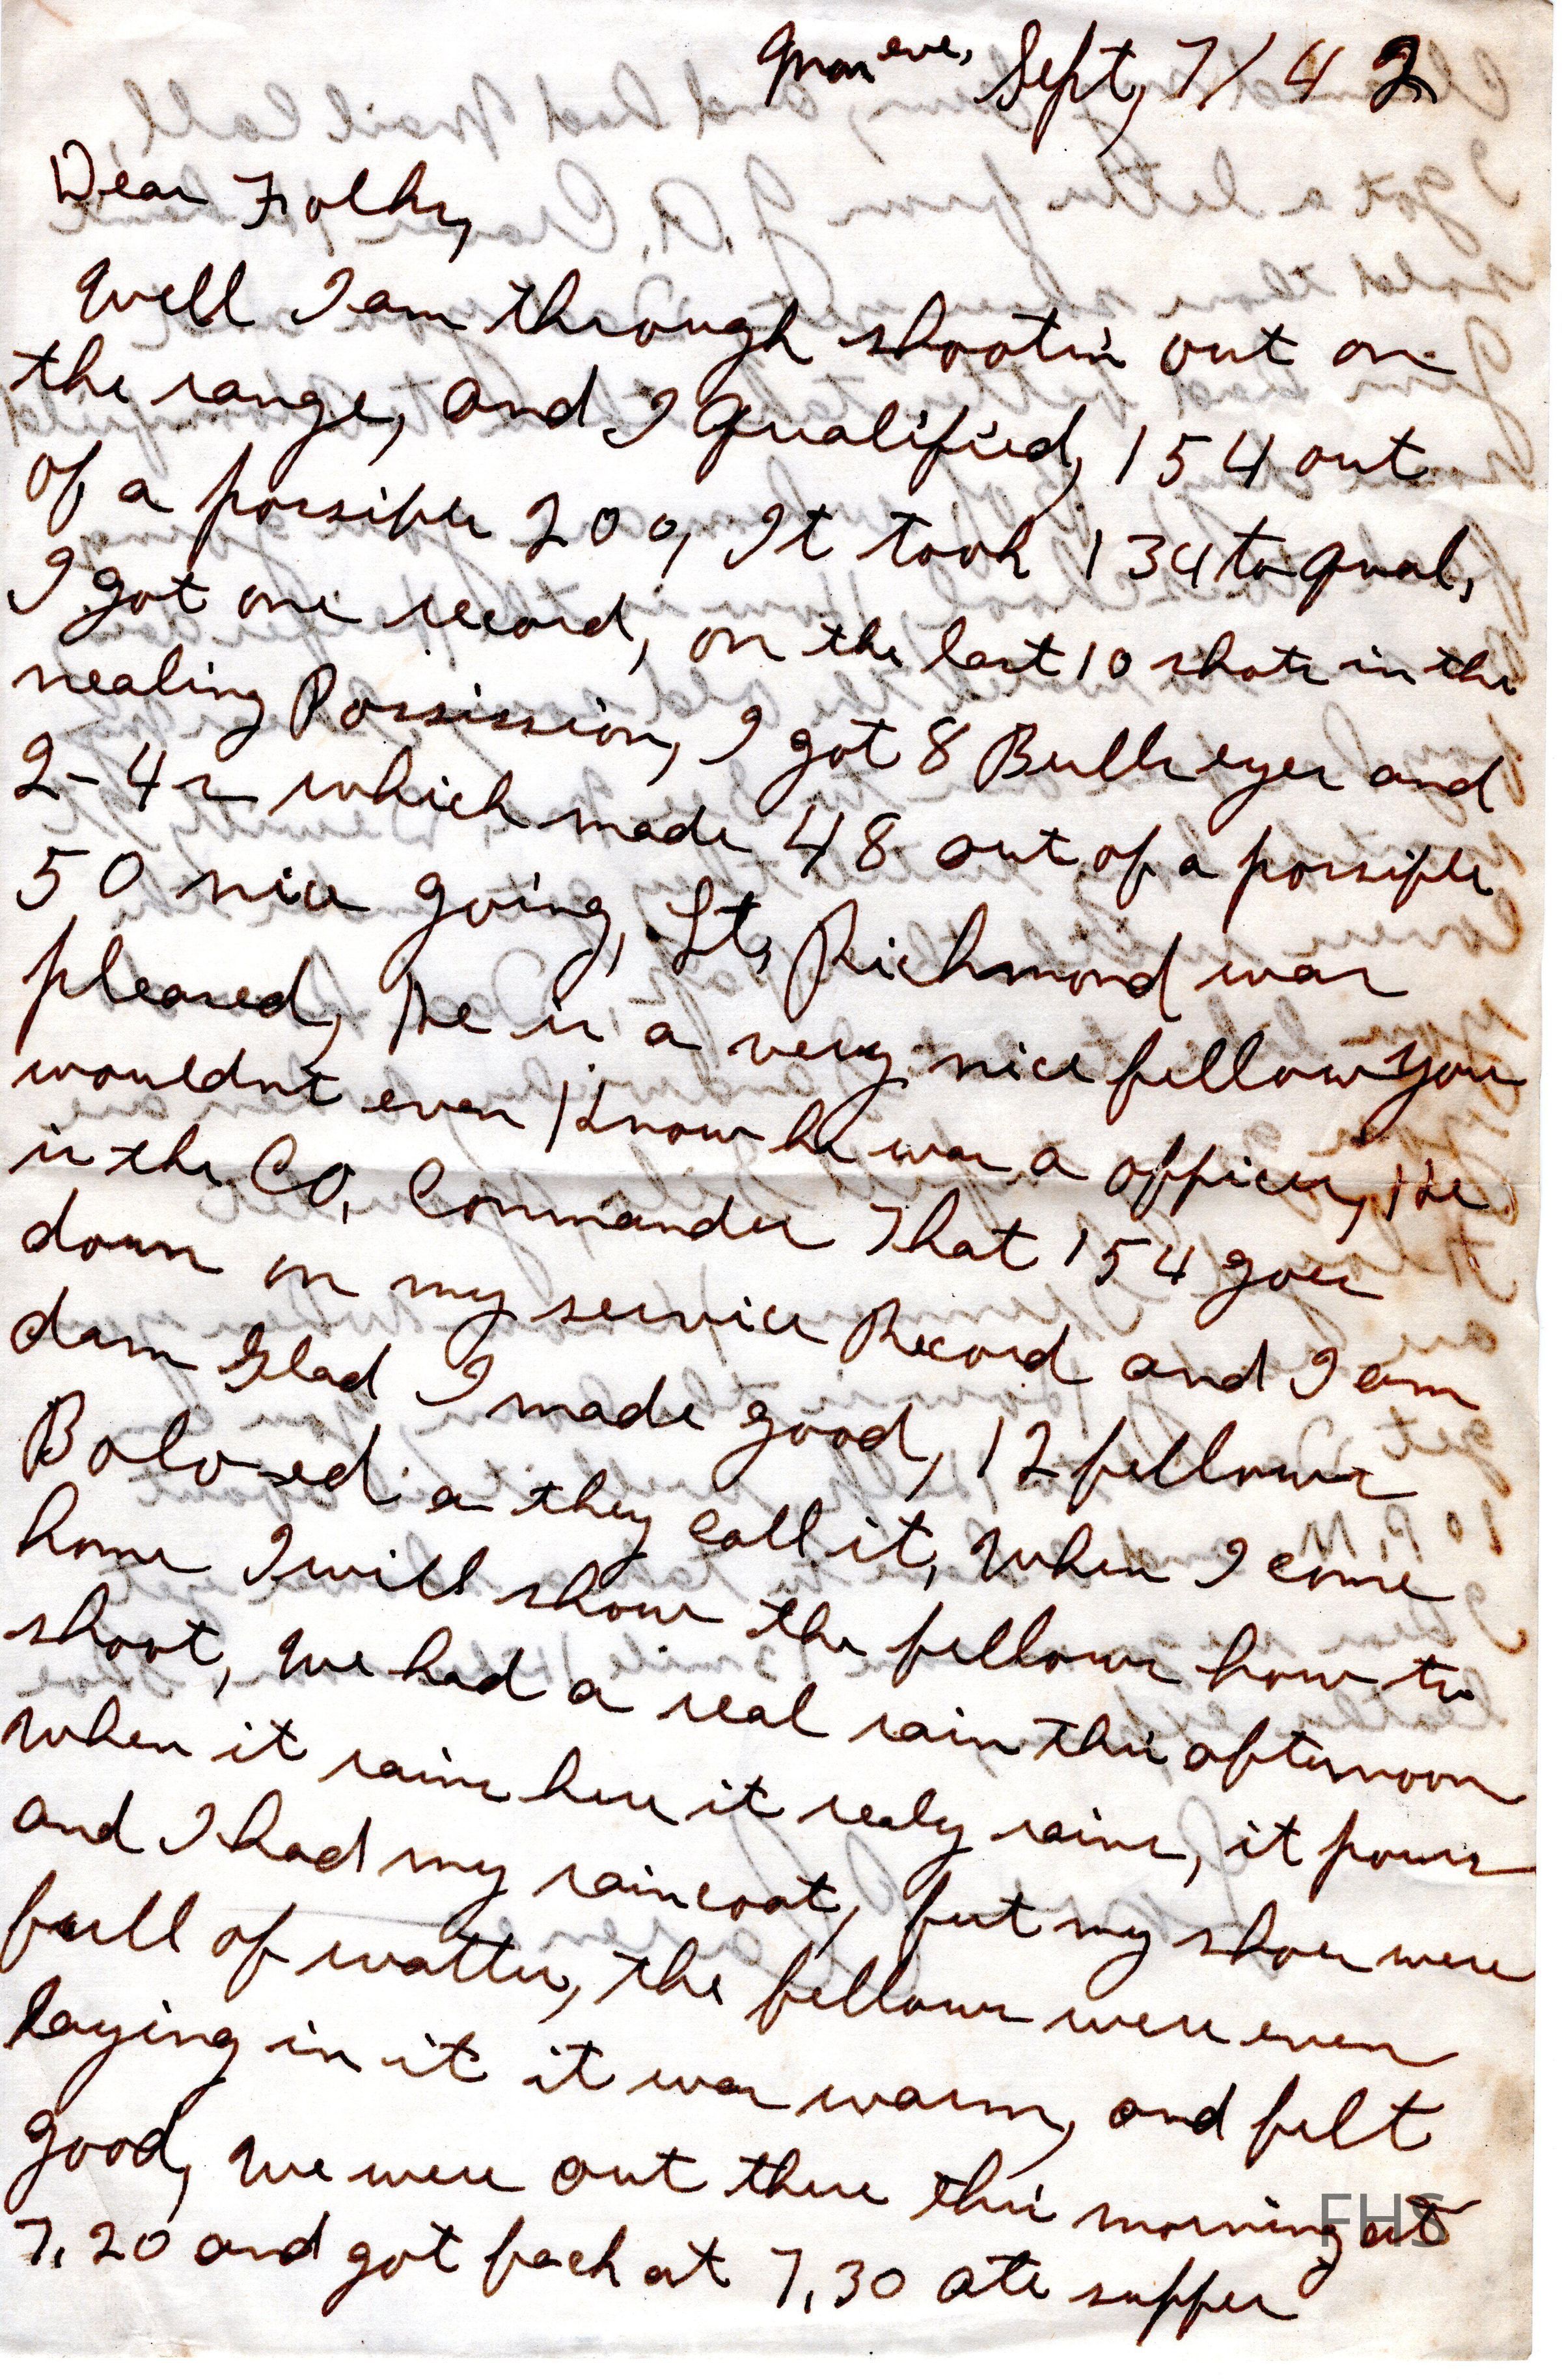 Mon eve, Sept, 7/42
Dear Folks,
Well I am through shootin out on
the range, and I Qualified, 154 out
of a possible 200, It took 134 to qual,
I got one record, on the last 10 shots in the
nealing Possission, I got 8 Bulls eyes and
2-4s which made 48 out of a possible
50 nice going, Lt, Richmond was
pleased, He is a very nice fellow you
wouldnt even know he was a officer, He
is the CO, Commander That 154 goes
down on my service Record and I am
dam Glad I made good, 12 fellows
Boloed as they call it, When I come
home I will show the fellows how to
shoot, We had a real rain this afternoon
When it rains here it realy rains, it pours
and I had my raincoat, but my shoes were
full of watter, the fellows were even
laying in it it was warm, and felt
good, We were out there this morning at
7,20 and got back at 7,30 ate supper
FHS